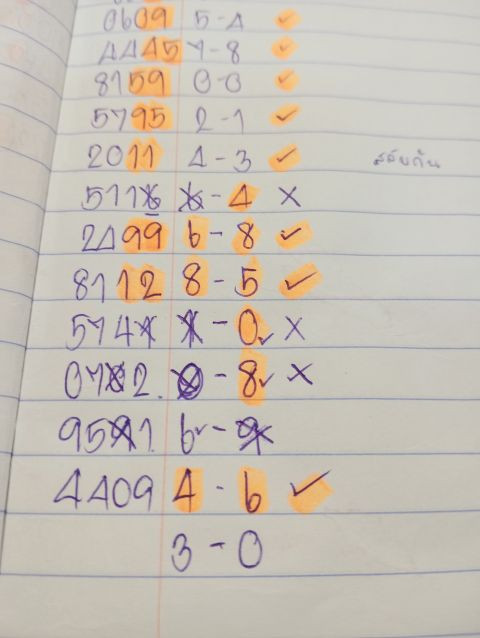 0609 5-4 ✓
4445 7-8 ✓
8159 0-0 ✓
5795 2-1 ✓
2011 4-3 ✓ สลับกัน
5116 6-4 ✗
2499 6-8 ✓
8112 8-5 ✓
5741 1-0✓ ✗
0782. 0-8✓ ✗
9591. 6✓-9
4409 4-6 ✓
3-0